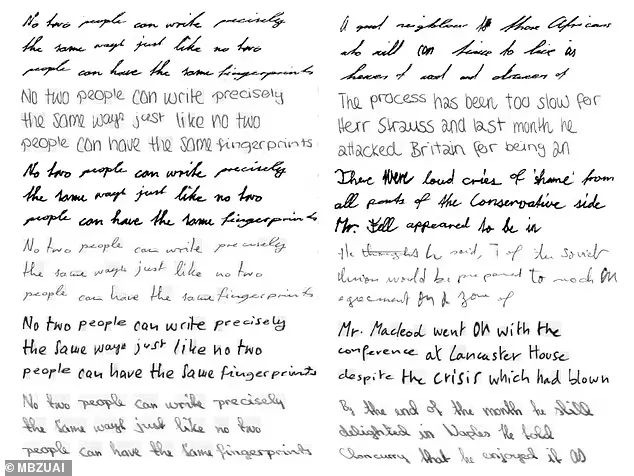 No two people can write precisely
the same ways just like no two
people can have the same fingerprints
No two people can write precisely
the same ways just like no two
people can have the same fingerprints
No two people can write precisely
the same ways just like no two
people can have the same fingerprints
No two people can write precisely
the same ways just like no two
people can have the same fingerprints
No two people can write precisely
the same ways just like no two
people can have the same fingerprints
No two people can write precisely
the same ways just like no two
people can have the same fingerprints
A good neighbour those Africans
who will to live as
hewers of wood and drawers of
The process has been too slow for
Herr Strauss and last month he
attacked Britain for being an
There were loud cries of 'shame' from
all parts of the Conservative side
Mr. appeared to be in
He thought he said, of the Soviet
Union would be prepared to
agreement on a zone of
Mr. Macleod went on with the
conference at Lancaster House
despite the crisis which had blown
By the end of the month he still
delighted in Naples he told
Clancurry that he enjoyed it as
© MBZUAI